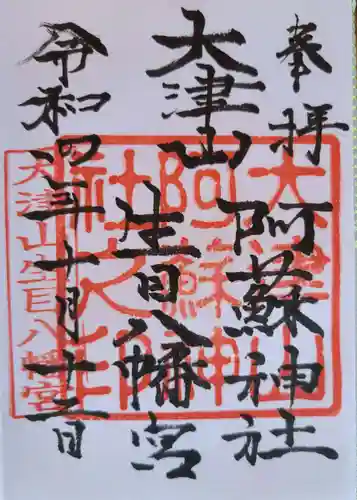 奉拝
大津山
阿蘇神社
生目八幡宮
令和四年十月十二日
大津山
阿蘇神
社之印
大津山生目八幡宮